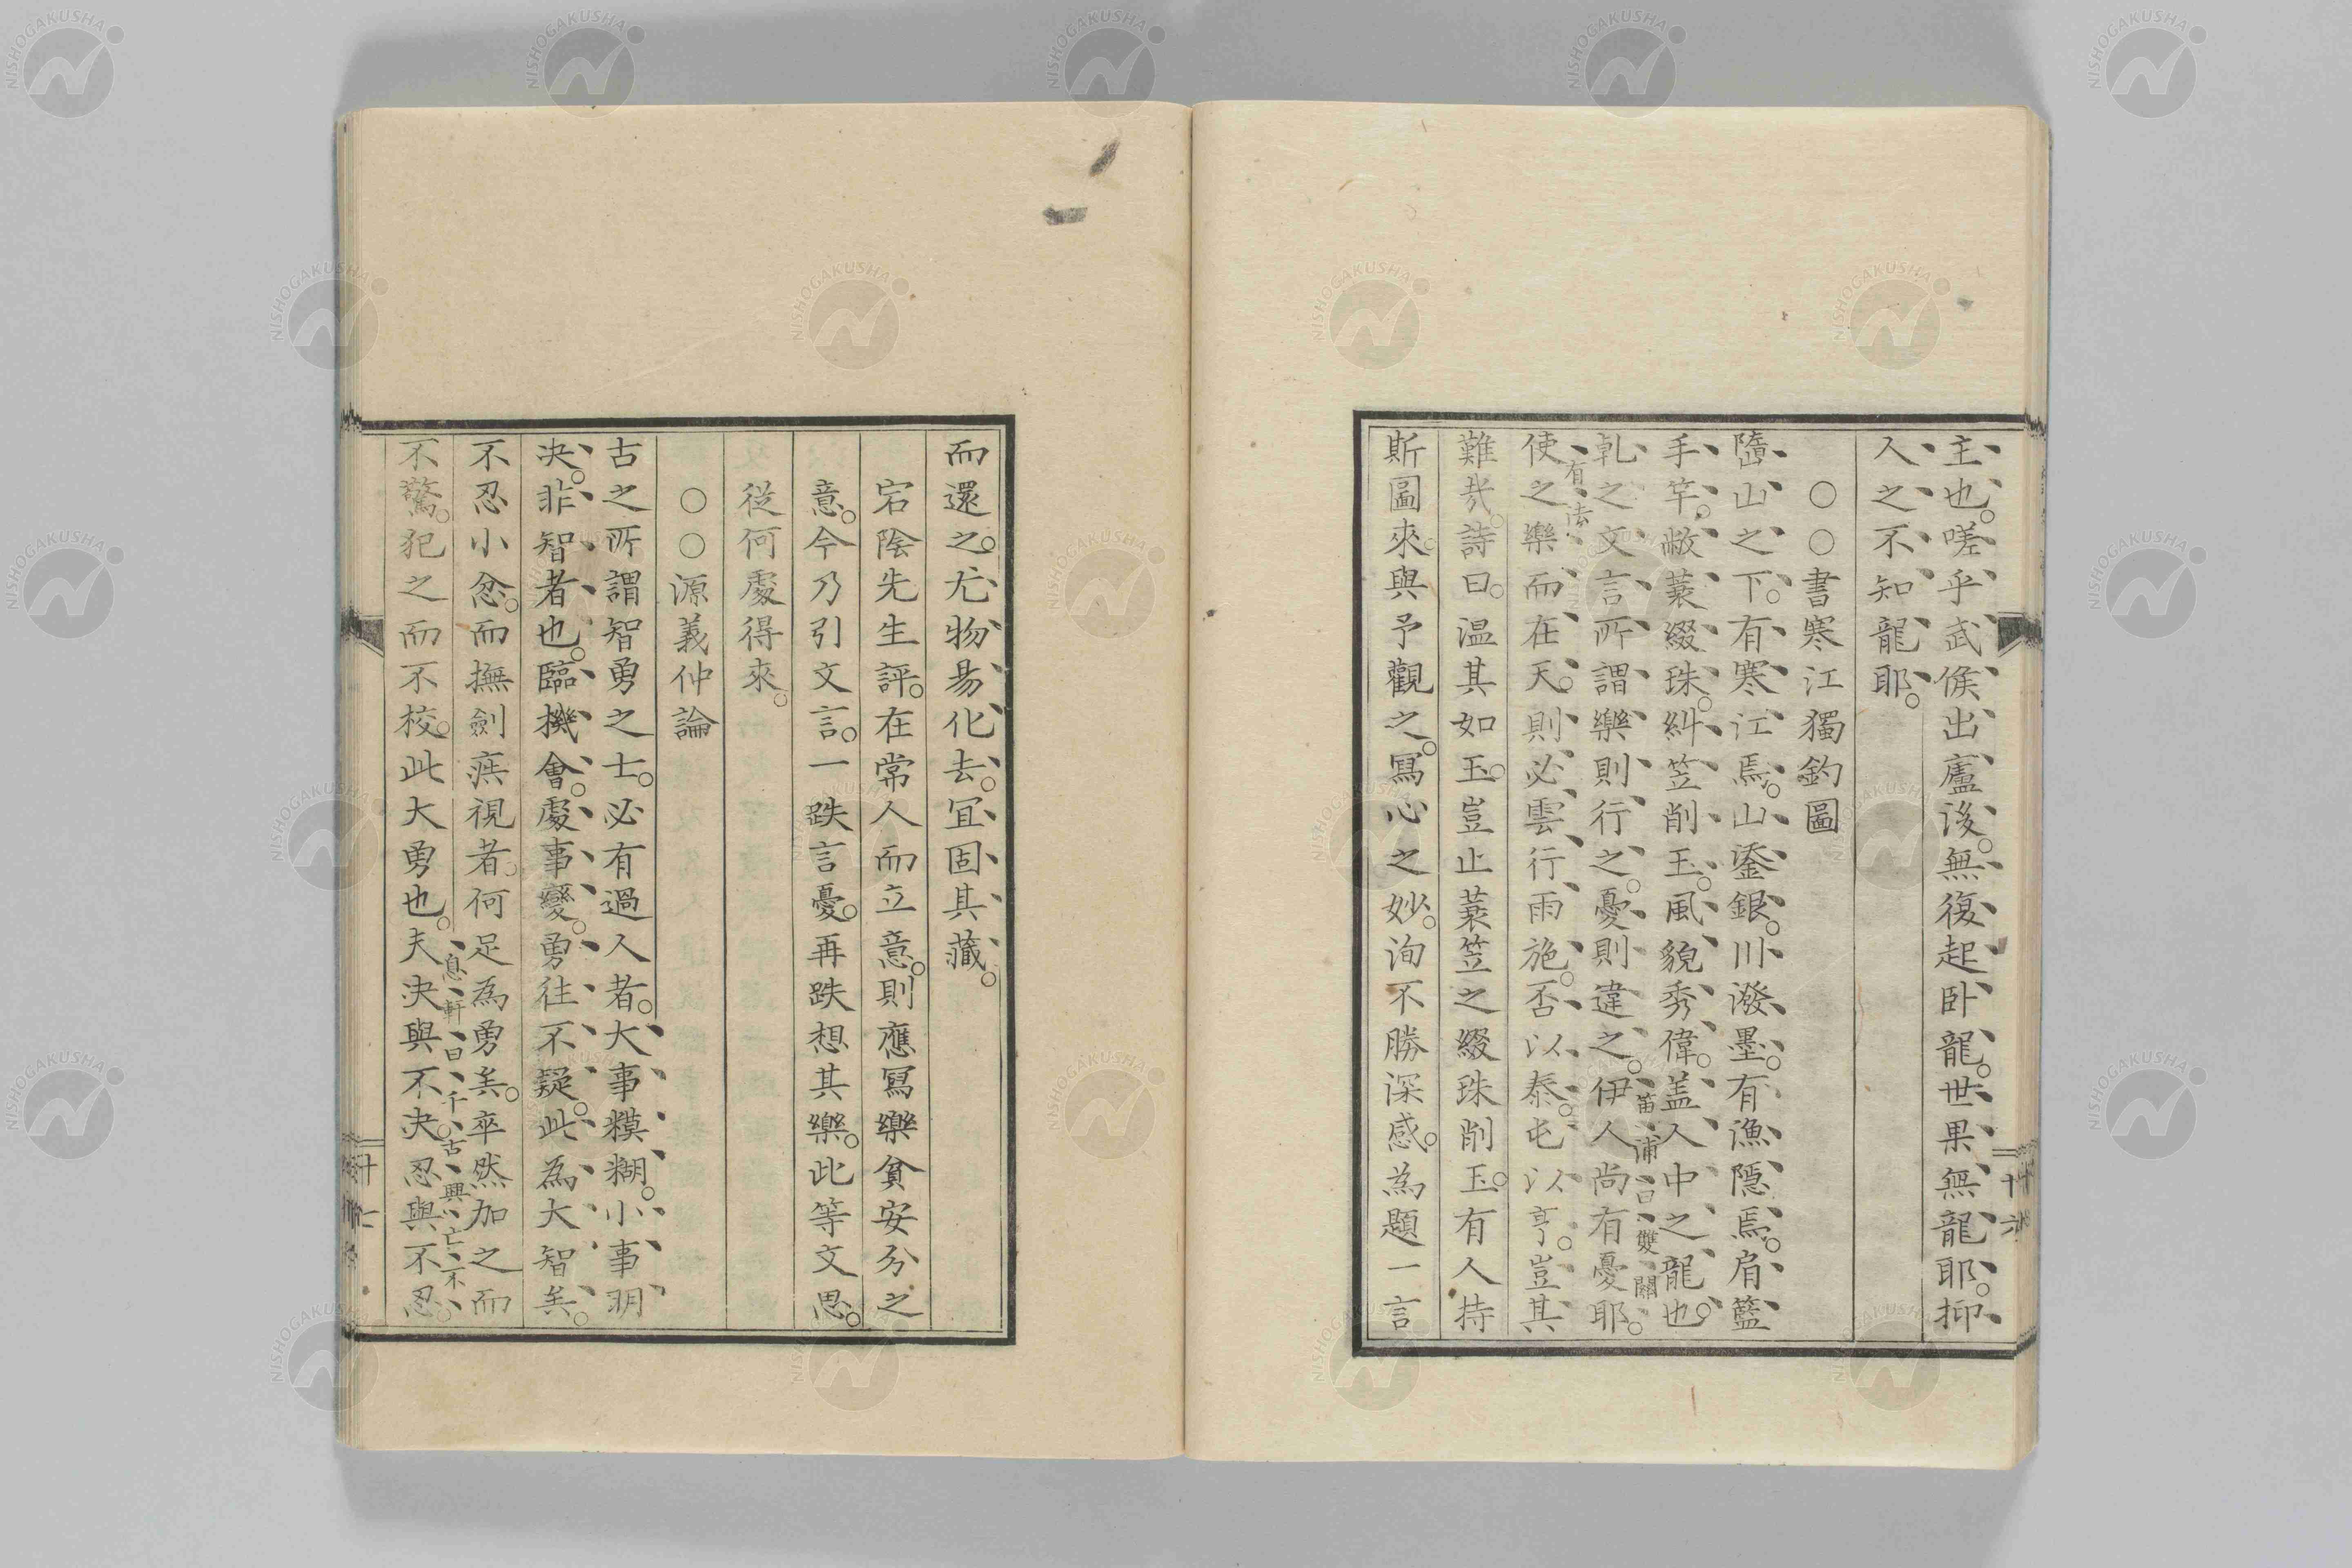 主也。嗟乎武侯出廬後。無復起臥龍。世果無龍耶。抑
人之不知龍耶。
○○書寒江獨釣圖
隋山之下。有寒江焉。山鋈銀。川潑墨。有漁隱焉。肩籃
手竿。敝蓑綴珠。糾笠削玉。風貌秀偉。盖人中之龍也。
笛浦曰雙關
乹之文言所謂樂則行之。憂則違之。伊人尚有憂耶。
有法
使之樂而在天。則必雲行雨施。否以泰。屯以亨。豈其
難㢤。詩曰。温其如玉。豈止蓑笠之綴珠削玉。有人持
斯圖來。與予觀之。冩心之妙。洵不勝深感。為題一言
十六
而還之。尤物易化去。冝固其藏。
宕陰先生評。在常人而立意。則應冩樂貧安分之
意。今乃引文言。一跌言憂。再跌想其樂。此等文思。
從何處得來。
○○源義仲論
古之所謂智勇之士。必有過人者。大事糢糊。小事明
决。非智者也。臨機會。處事變。勇往不疑。此為大智矣。
不忍小忿。而撫劍疾視者。何足為勇矣。卒然加之而
息軒曰千古興亡不
不驚。犯之而不校。此大勇也。夫决與不决。忍與不忍。